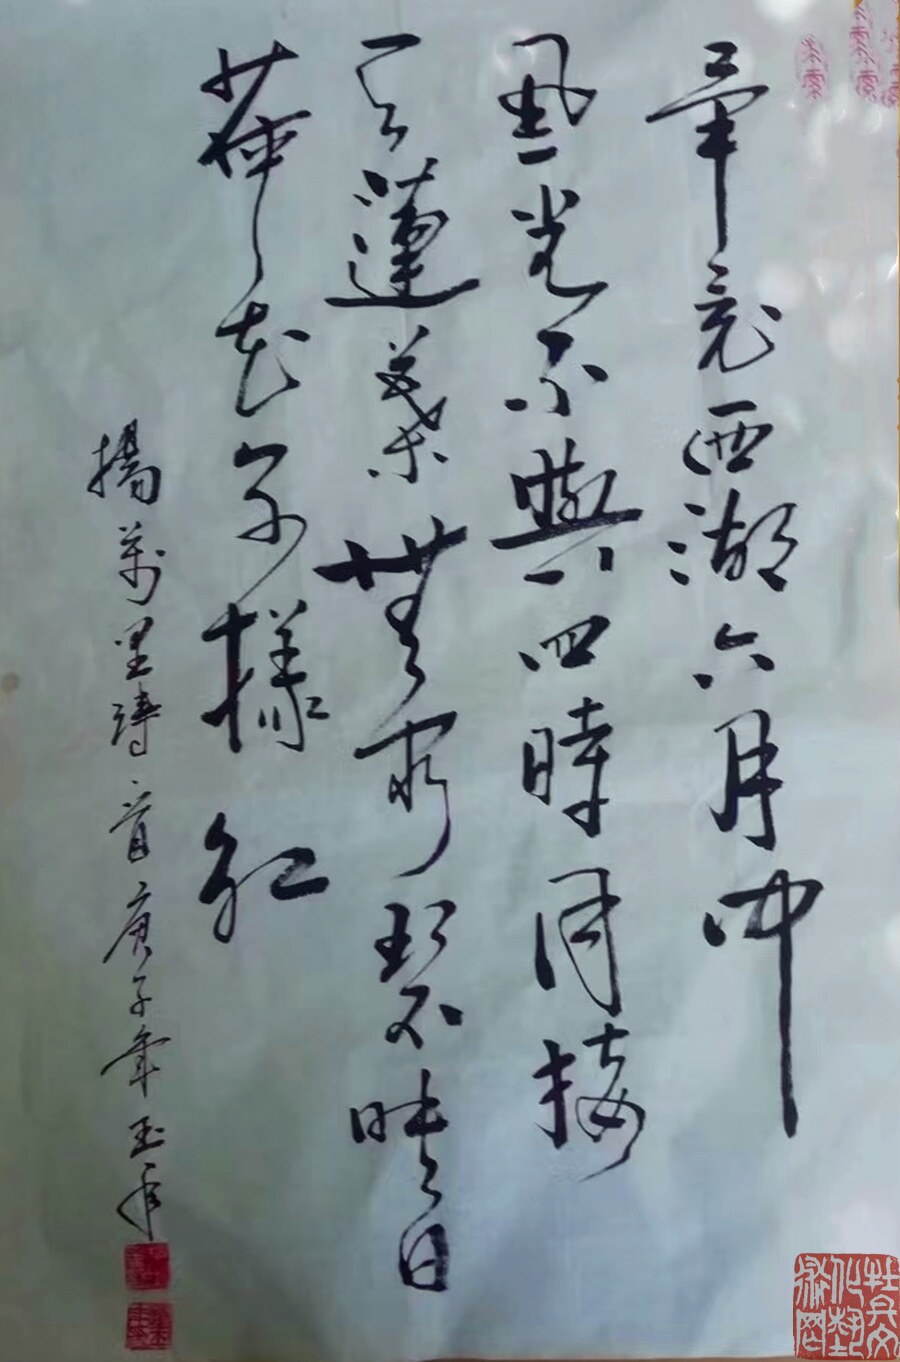 畢竟西湖六月中
風光不與四時同接
天蓮葉無窮碧映日
荷花別樣紅
楊萬里詩一首庚子年玉